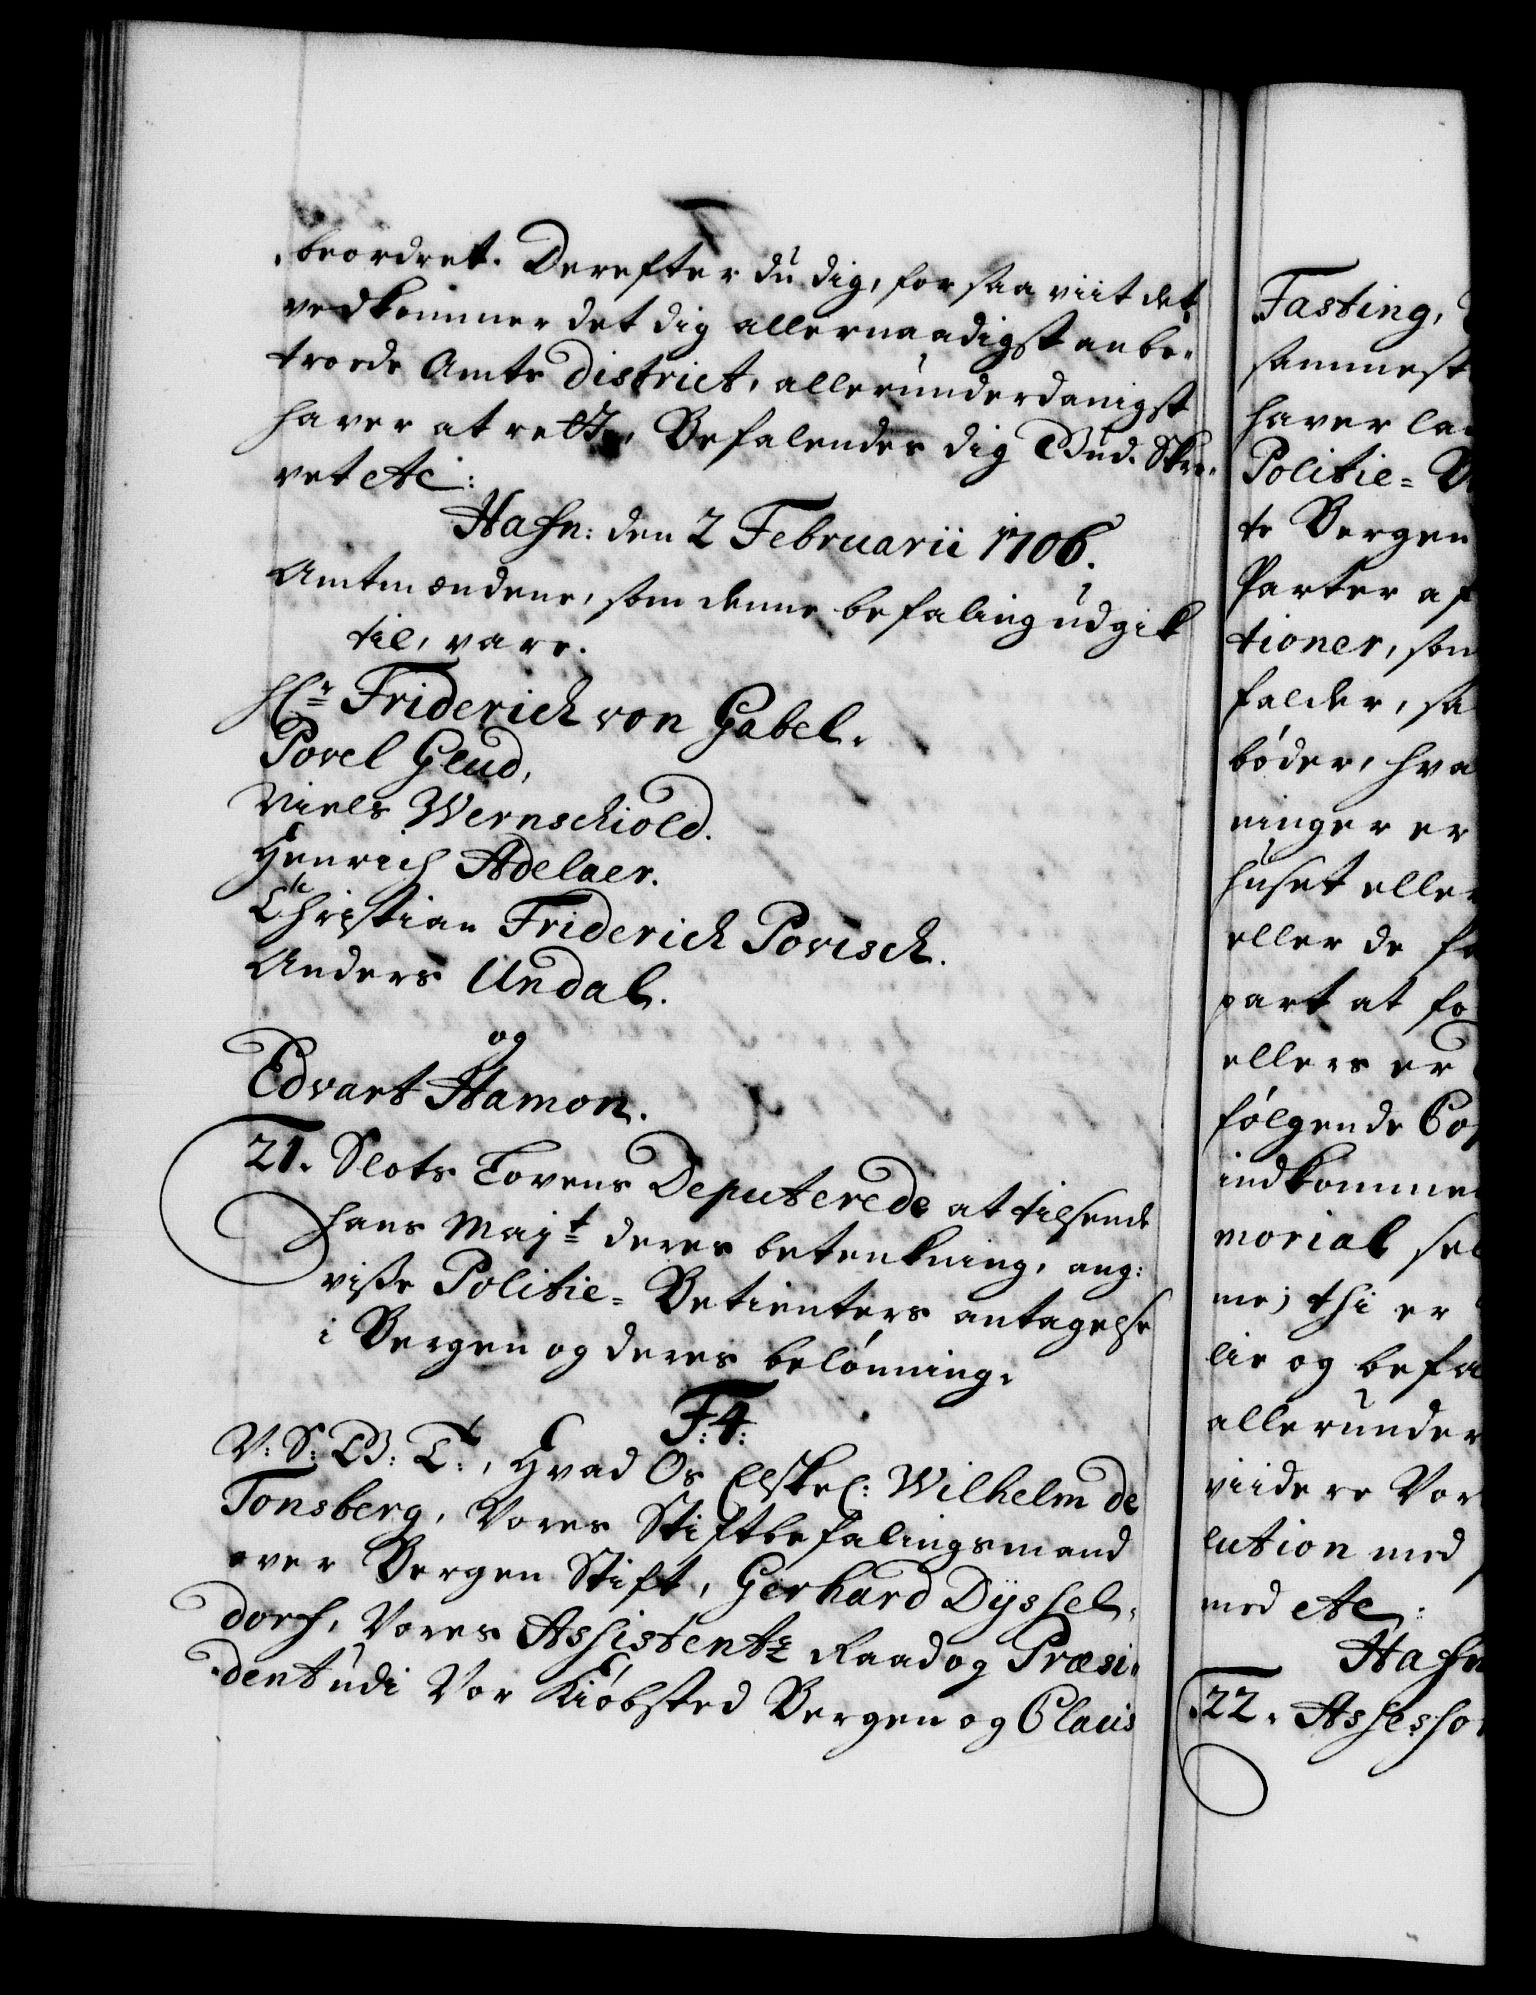 beordret. Derefter du dig, forsaaviit det
vedkommer det dig allernaadigst anbe-
troede Amts District, allerunderdanigst
haver at rette, Befalendes dig Gud. Skre-
vet etc:
Hafn: den 2 Februarii 1706.
Amtmændene, som denne befaling udgik
til, vare.
Hr Friderich von Gabel.
Povel Glud,
Niels Wernschiold.
Henrich Adelaer.
Christian Friderich Povisch.
Anders Undal.
og
Edvart Hamon.
21. Slots Lovens Deputerede at tilsende
Hans Mayt deres betenkning, ang:
visse Politie-Betienters antagelse
i Bergen og deres belónning.
F: 4:
V: S: G: T:, Hvad Os Elskel: Wilhelm de
Tonsberg, Vores Stiftbefalingsmand
over Bergen Stift, Gerhard Dÿssel-
dorf, Vores Assistentz Raad og Præsi-
dent udi Vor Kiöbsted Bergen og Claus
Fasting,
sammest
haver la
Politie-
te Bergen
Parter af
tioner, som
falder, sa
bóder, hva
ninger er
huset eller
eller de
part at fo
ellers er
fólgende Cop
indkommen
morial sel
me; thi er
lie og befa
allerunder
viidere Vor
lution med
med etc:
Hafn
22. Assessor